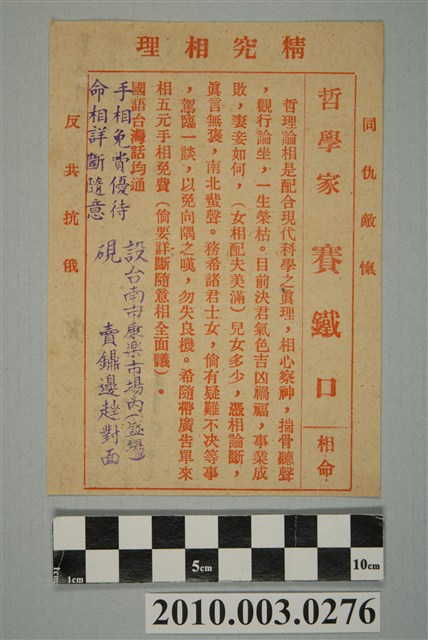 精究相理
同仇敵愾
哲學家 賽鐵口 相命
哲理論相是配合現代科學之眞理，相心察神，揣骨聽聲
，觀行論坐，一生榮枯。目前決君氣色吉凶禍福，事業成
敗，妻妾如何，（女相配夫美滿）兒女多少，憑相論斷，
眞言無褒，南北蜚聲。務希諸君士女，倘有疑難不决等事
，駕臨一談，以免向隅之嘆，勿失良機。希隨帶廣告單來
相五元手相免費（倘要詳斷隨意相全面議）．
國語台灣話均通
設台南市康樂市場內(盛場)
賣鼎邊趖對面
手相免賞優待
命相詳斷隨意
硯
反共抗俄
1cm
5cm
10cm
2010.003.0276